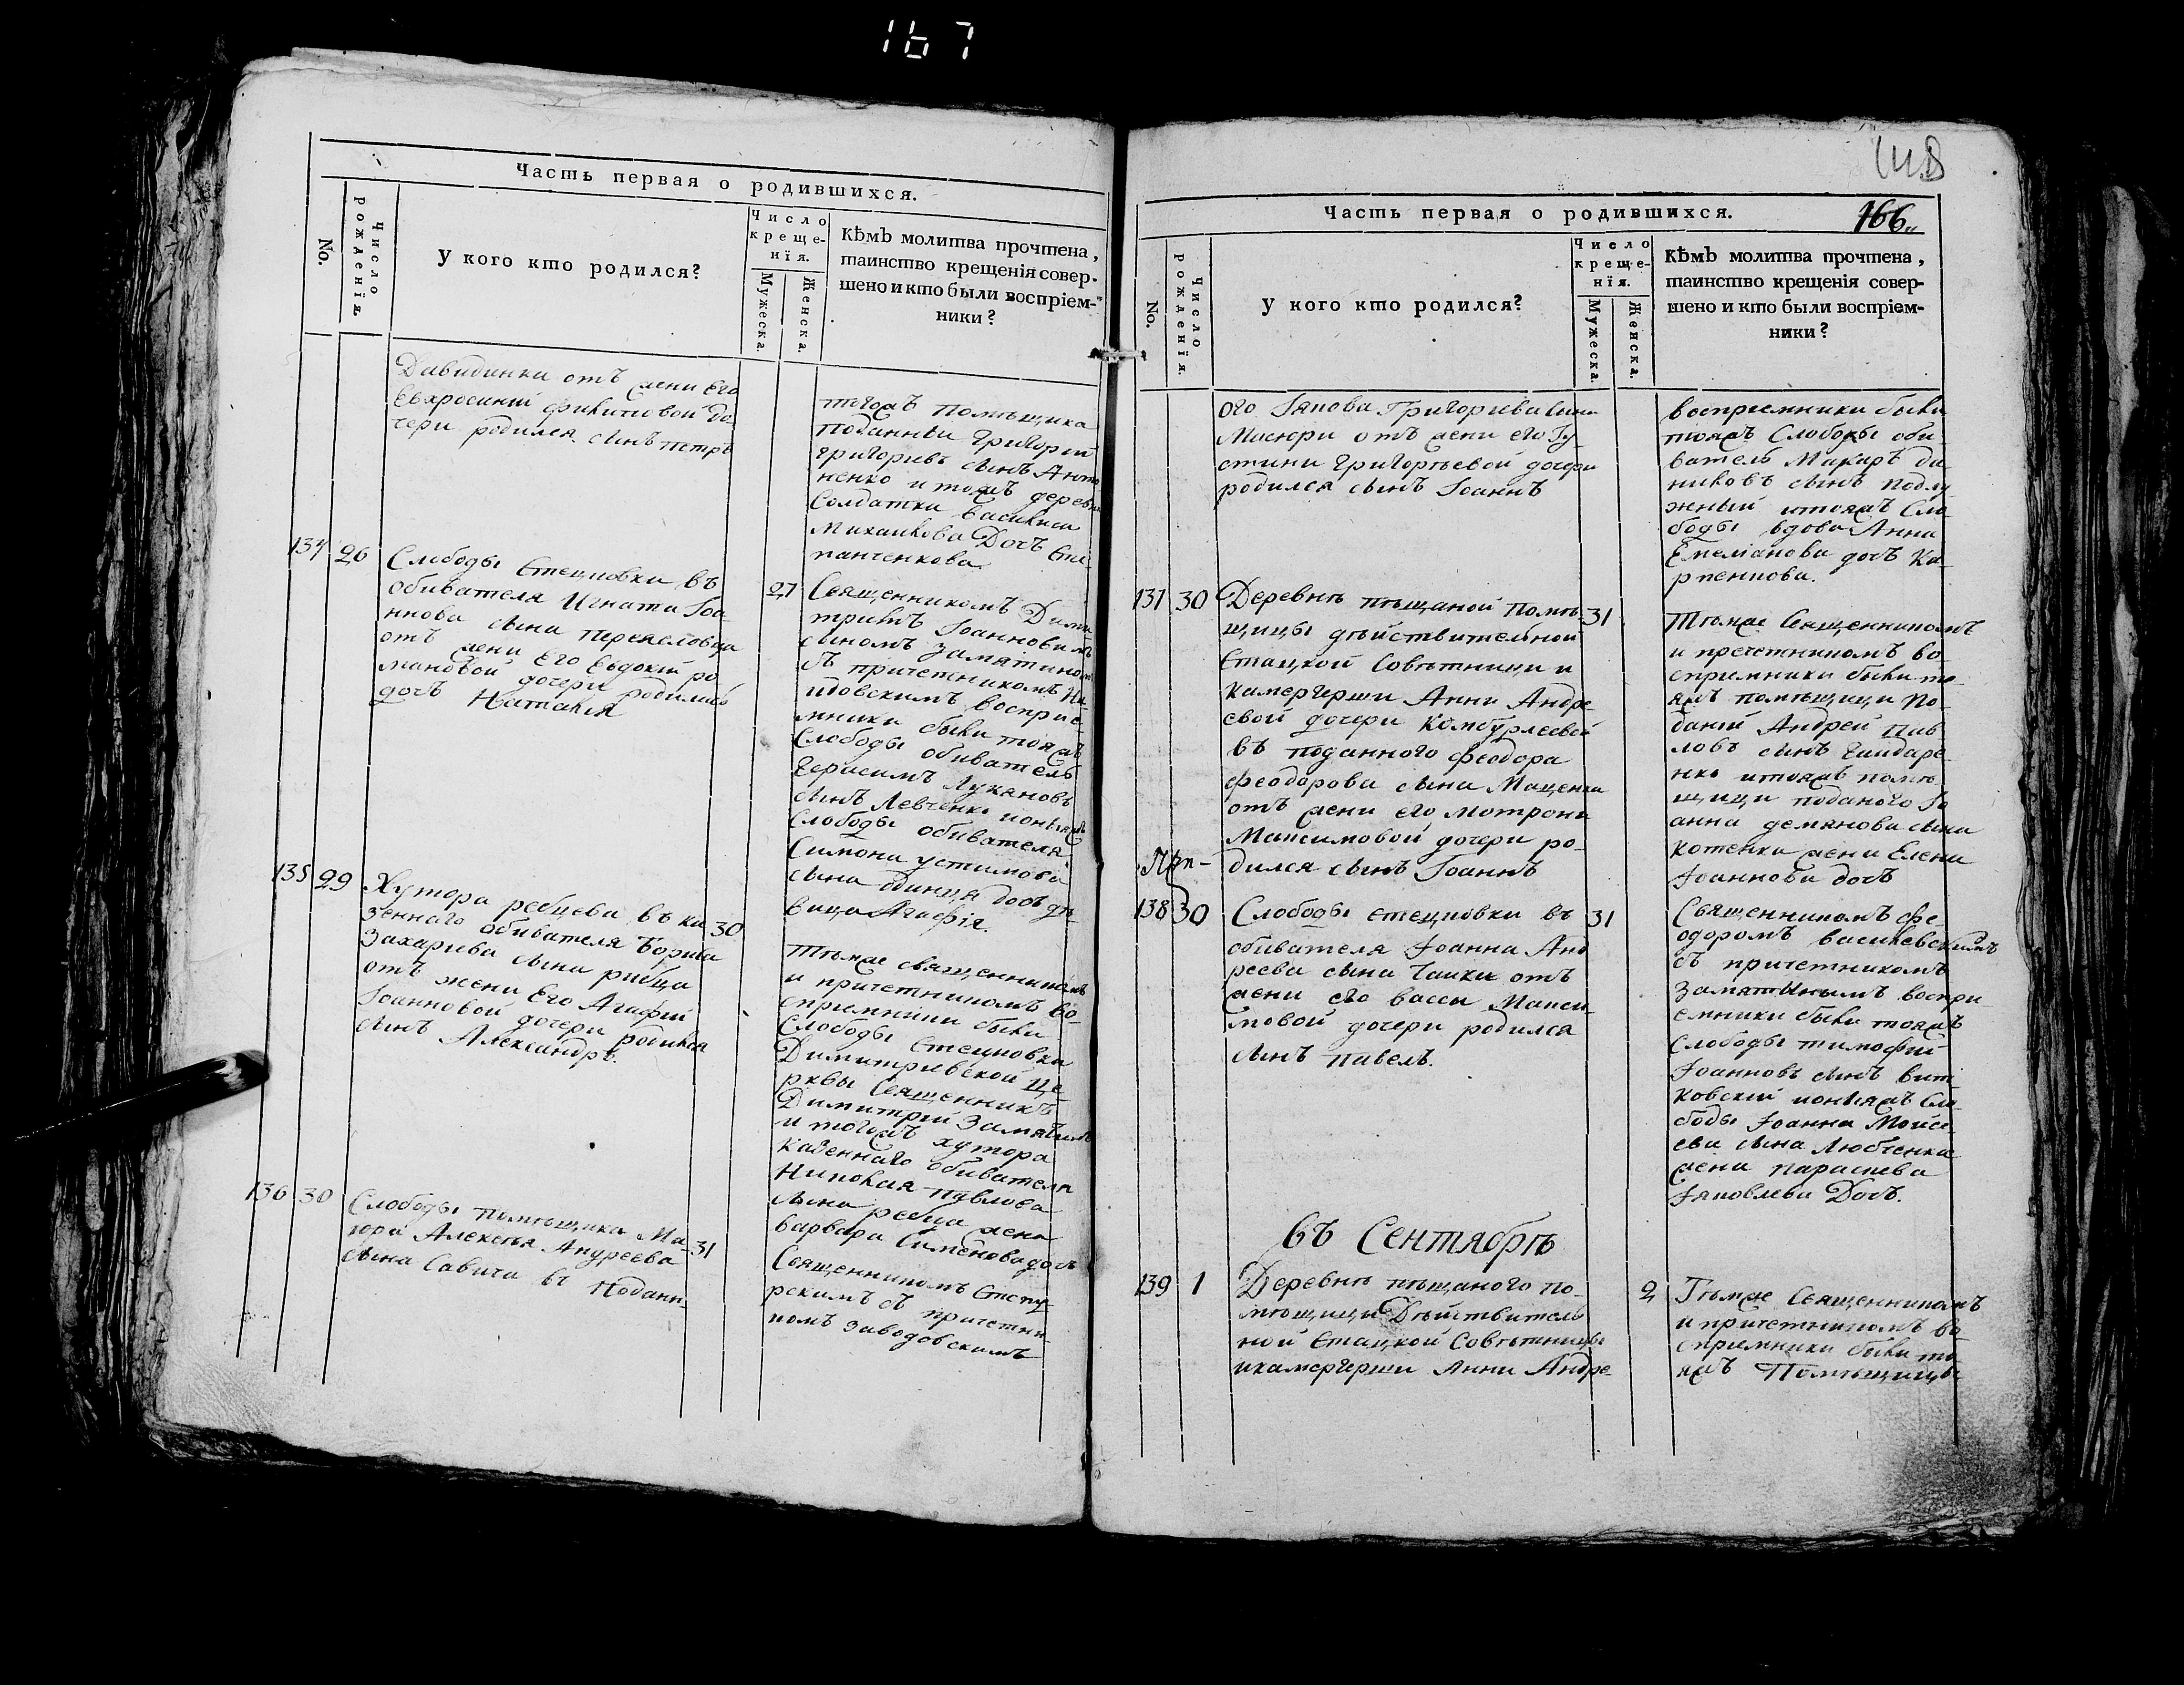 167
Часть первая о родившихся.
No.
Число рожденія.
У кого кто родился?
Число крещенія.
Мужеска.
Женска.
Кѣмъ молитва прочтена,
таинство крещенія совер-
шено и кто были воспріем-
ники?
Давидинки отъ жени его
Евхросиніи Филиповой до-
чери родился синъ петръ
тогожъ помѣщика
поданній григорий
григориевъ синъ Анто
ненко и тожъ деревни
солдатки василиси
Михаилова Дочъ Сте-
панченкова
134 26
Слободы Стецковки въ
обивателя Игната Іоа-
ннова сина
отъ жени его Евдокіи ро
мановой дочери родилась
дочъ Наталия
27
Священникомъ Дими
тріемъ Іоанновимъ
синомъ замятиномъ
съ причетникомъ
воспріе-
мники были тояжъ
слободы обиватель
Герасимъ Лукяновъ
синъ Левченко и онияжъ
слободы обивателя
Симона устимова
сина дочъ дѣ-
вица Агафія.
135 29
Хутора ребцева въ ка
зеннаго обивателя бориса
Захариева сина рибца
отъ жени его Агафіи
Іоанновой дочери родился
синъ Александръ.
30
тѣмже священникомъ
и причетникомъ во-
спріемники были
Слободы Стецковки
Димитриевской це
ркви Священникъ
Димитрій Замятинъ
и тогожъ хутора
казеннаго обивателя
Николая павлова
сина ребца жена
варвара Сименова дочъ
136 30
Слободы помѣщика Ма-
іора Алексѣя Андреева
сина Савича въ подан-
31
Священникомъ
съ причетни-
комъ заводовскимъ
166
Часть первая о родившихся.
No.
Число рожденія.
У кого кто родился?
Число крещенія.
Мужеска.
Женска.
Кѣмъ молитва прочтена,
таинство крещенія совер-
шено и кто были воспріем-
ники?
ого Іякова григориева сина
Мисюри отъ жени его Іу-
стини григорьевой дочери
родился синъ Іоаннъ
воспріемники были
тояжъ слободы оби-
ватель Макаръ да
ниловъ синъ подлу
жный и тояжъ Сло
боды вдова Анна
Емелянова дочъ Ка-
рпенкова.
137 30
Деревнѣ пѣщаной помѣ-
щицы дѣйствительной
Стацкой Совѣтници и
камергерши Анни Андре-
евой дочери Комбурлеевой
въ поданного феодора
феодорова сина Маценка
отъ жени его мотрони
Максимовой дочери ро-
дился синъ Іоаннъ
31
Тѣмже Священникомъ
и причетникомъ во-
спріемники были то
яжъ помѣщици по-
даній Андрей пав
ловъ синъ гайдаре
нко и тояжъ помѣ
щици поданого Іо
анна демянова сина
котенка жена Елена
Іоаннова дочъ
138 30
Слободы стецковки въ
обивателя Іоанна Анд
реева сина Чайки отъ
жени его васси Макси-
мовой дочери родился
синъ павелъ.
31
Священникомъ фе
одоромъ василевскимъ
съ причетникомъ
замятинимъ воспри
емники были тояжъ
слободы тимофій
Іоанновъ синъ вит-
ковскій и онияжъ Сло-
боды Іоанна Моисе-
ева сина Любченка
жена параскева
Іяковлева Дочъ.
въ Сентябрѣ
139 1
Деревнѣ пѣщаного по-
мѣщици Дѣйствитель
ной Стацкой Совѣтницы
и камергерши Анни Андре-
2
Тѣмже Священникомъ
и причетникомъ во-
спріемники были то-
яжъ Помѣщицы